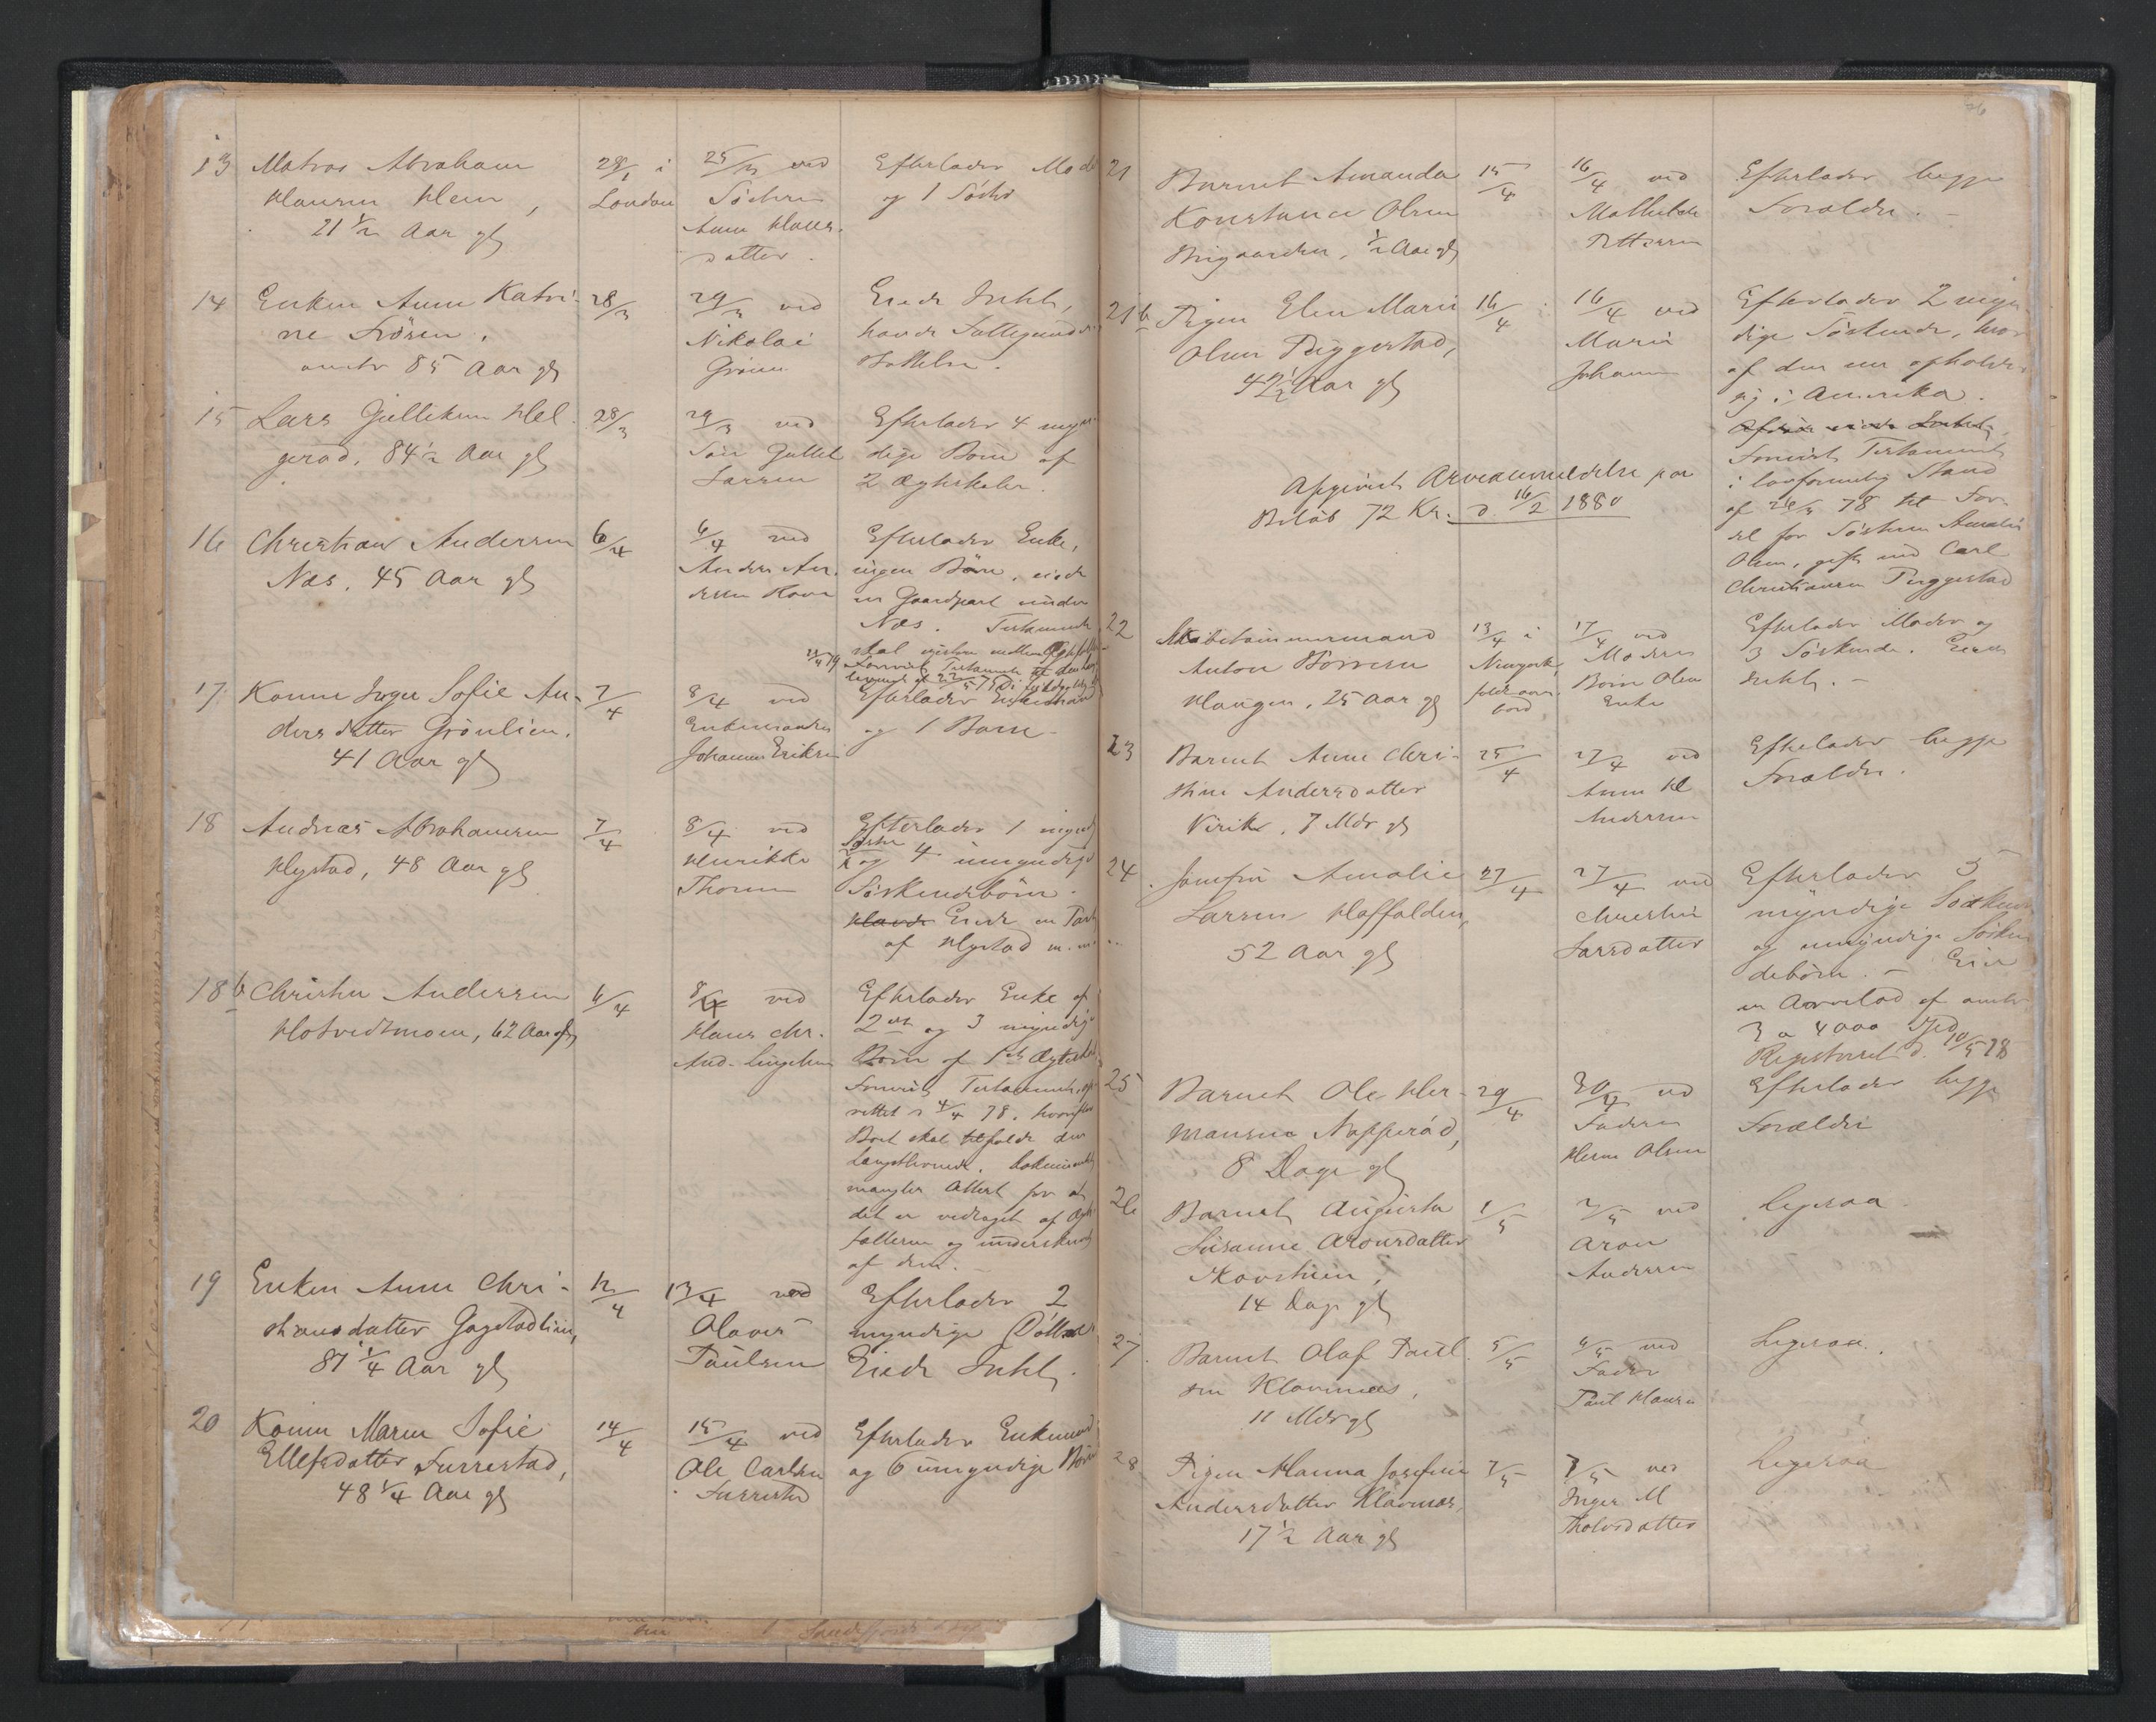 13 Matros Abraham 28/1 i 25/3 ved Efterlader Moder
Hansen Hem, London Søsteren og 1 Søster
21 1/2 Aar gl Anne Hans-
datter.
14 Enken Anne Katri- 28/3 29/3 ved Eiede Intet,
ne Frösen. Nikolai havde Fattigunder-
omtr 85 Aar gl Grøun støttelse.
15 Lars Gulliksen Hel- 28/3 29/3 ved Efterlader 4 myn-
gerød, 84 1/2 Aar gl Søn Gullik dige Børn af
Larsen 2 Ægteskaber.
16 Christian Andersen 6/4 6/4 ved Efterlader Enke,
Næs. 45 Aar gl Anders An- ingen Børn, eiede
dersen en Gaardpart under
Næs. Testamente
skal existere mellem Ægtefolkene
Forevist Testamente
17 Konen Inger Sofie An- 7/4 8/4 ved Efterlader Enkemand
dersdatter Grönlien. Enkemanden og 1 Barn -
41 Aar gl Johannes Eriksen
18 Andreas Abrahamsen 7/4 8/4 ved Efterlader 1 myndig
Hystad, 48 Aar gl Henrikke Søster og 4 umyndige
Thorsen Söskendebörn.
Havde Eiede en Part
af Hystad m.m.
18b Christen Andersen 6/4 8/4 ved Efterlader Enke af
Hotvedtmoen, 62 Aar gl Hans Chr. 2det og 3 myndige
And- Børn af 1ste Ægteskab
Forevist Testamente, op-
rettet 4/4 78. hvorefter
Boet skal tilfalde den
Længstlevende. Dokumentet
mangler Attest for at
det er vedtaget af Ægte-
fællerne og underskrevet
af dem. -
19 Enken Anne Chri- 12/4 13/4 ved Efterlader 2
stiansdatter Gogstadlien, Olaves myndige Döttre
87 1/4 Aar gl Paulsen Eiede Intet.
20 Konen Maren Sofie 14/4 15/4 ved Efterlader Enkemand
Ellefsdatter Furrestad, Ole Carlsen og 6 umyndige Börn
48 1/4 Aar gl Furrestad
21 Barnet Amanda 15/4 16/4 ved Efterlader begge
Konstance Olsen Mathilde Forældre. -
Bugaarden, 1/2 Aar gl Pettersen
21b Pigen Elen Marie 16/4 16/4 ved Efterlader 2 myn-
Olsen Puggestad, Marie dige Söskende, hvor-
42 1/2 Aar gl Johannes af den ene opholder
sig i Amerika.
Forevist Testamente
Afgivet Arveanmeldelse paa i lovformelig Stand
Beløb 72 Kr. d. 16/2 1880 af 78 til For-
del for Søsteren Amalie
Olsen, gift med Carl
Christiansen Puggestad
22 Skibstømmermand 13/4 i 17/4 ved Efterlader Moder og
Anton Newyork, Moderen 3 Söskende. Eiede
Haugen. 25 Aar gl faldt over- Olsen Intet. -
bord Enke
23 Barnet Anne Chri- 25/4 27/4 ved Efterlader begge
stine Andersdatter Anne H Forældre.
Virik, 7 Mdr gl Andersen
24 Jomfru Amalie 27/4 27/4 ved Efterlader 5
Larsen Haffalden, Christine myndige Sødskende
52 Aar gl Larsdatter og umyndige Södsken-
debörn. - Eier
en Arvelod af omtr
3 a 4000 Spd
Registreret d. 10/5 78
25 Barnet Ole Her- 29/4 30/4 ved Efterlader begge
mansen Nopperød, Faderen Forældre
8 Dage gl Herm Olsen
26 Barnet Augusta 1/5 2/5 ved Ligesaa.
Susanne Aronsdatter Aron
Skovsheim, Andersen
14 Dage gl
27. Barnet Olaf Paul- 5/5 6/5 ved Ligesaa.
sen Klavenæs, Fader
11 Mdr gl Paul Hansen
28 Pigen Hanna Josefine 7/5 7/5 ved Ligesaa
Andersdatter Klavenæs, Inger M
17 1/2 Aar gl Tholvsdatter